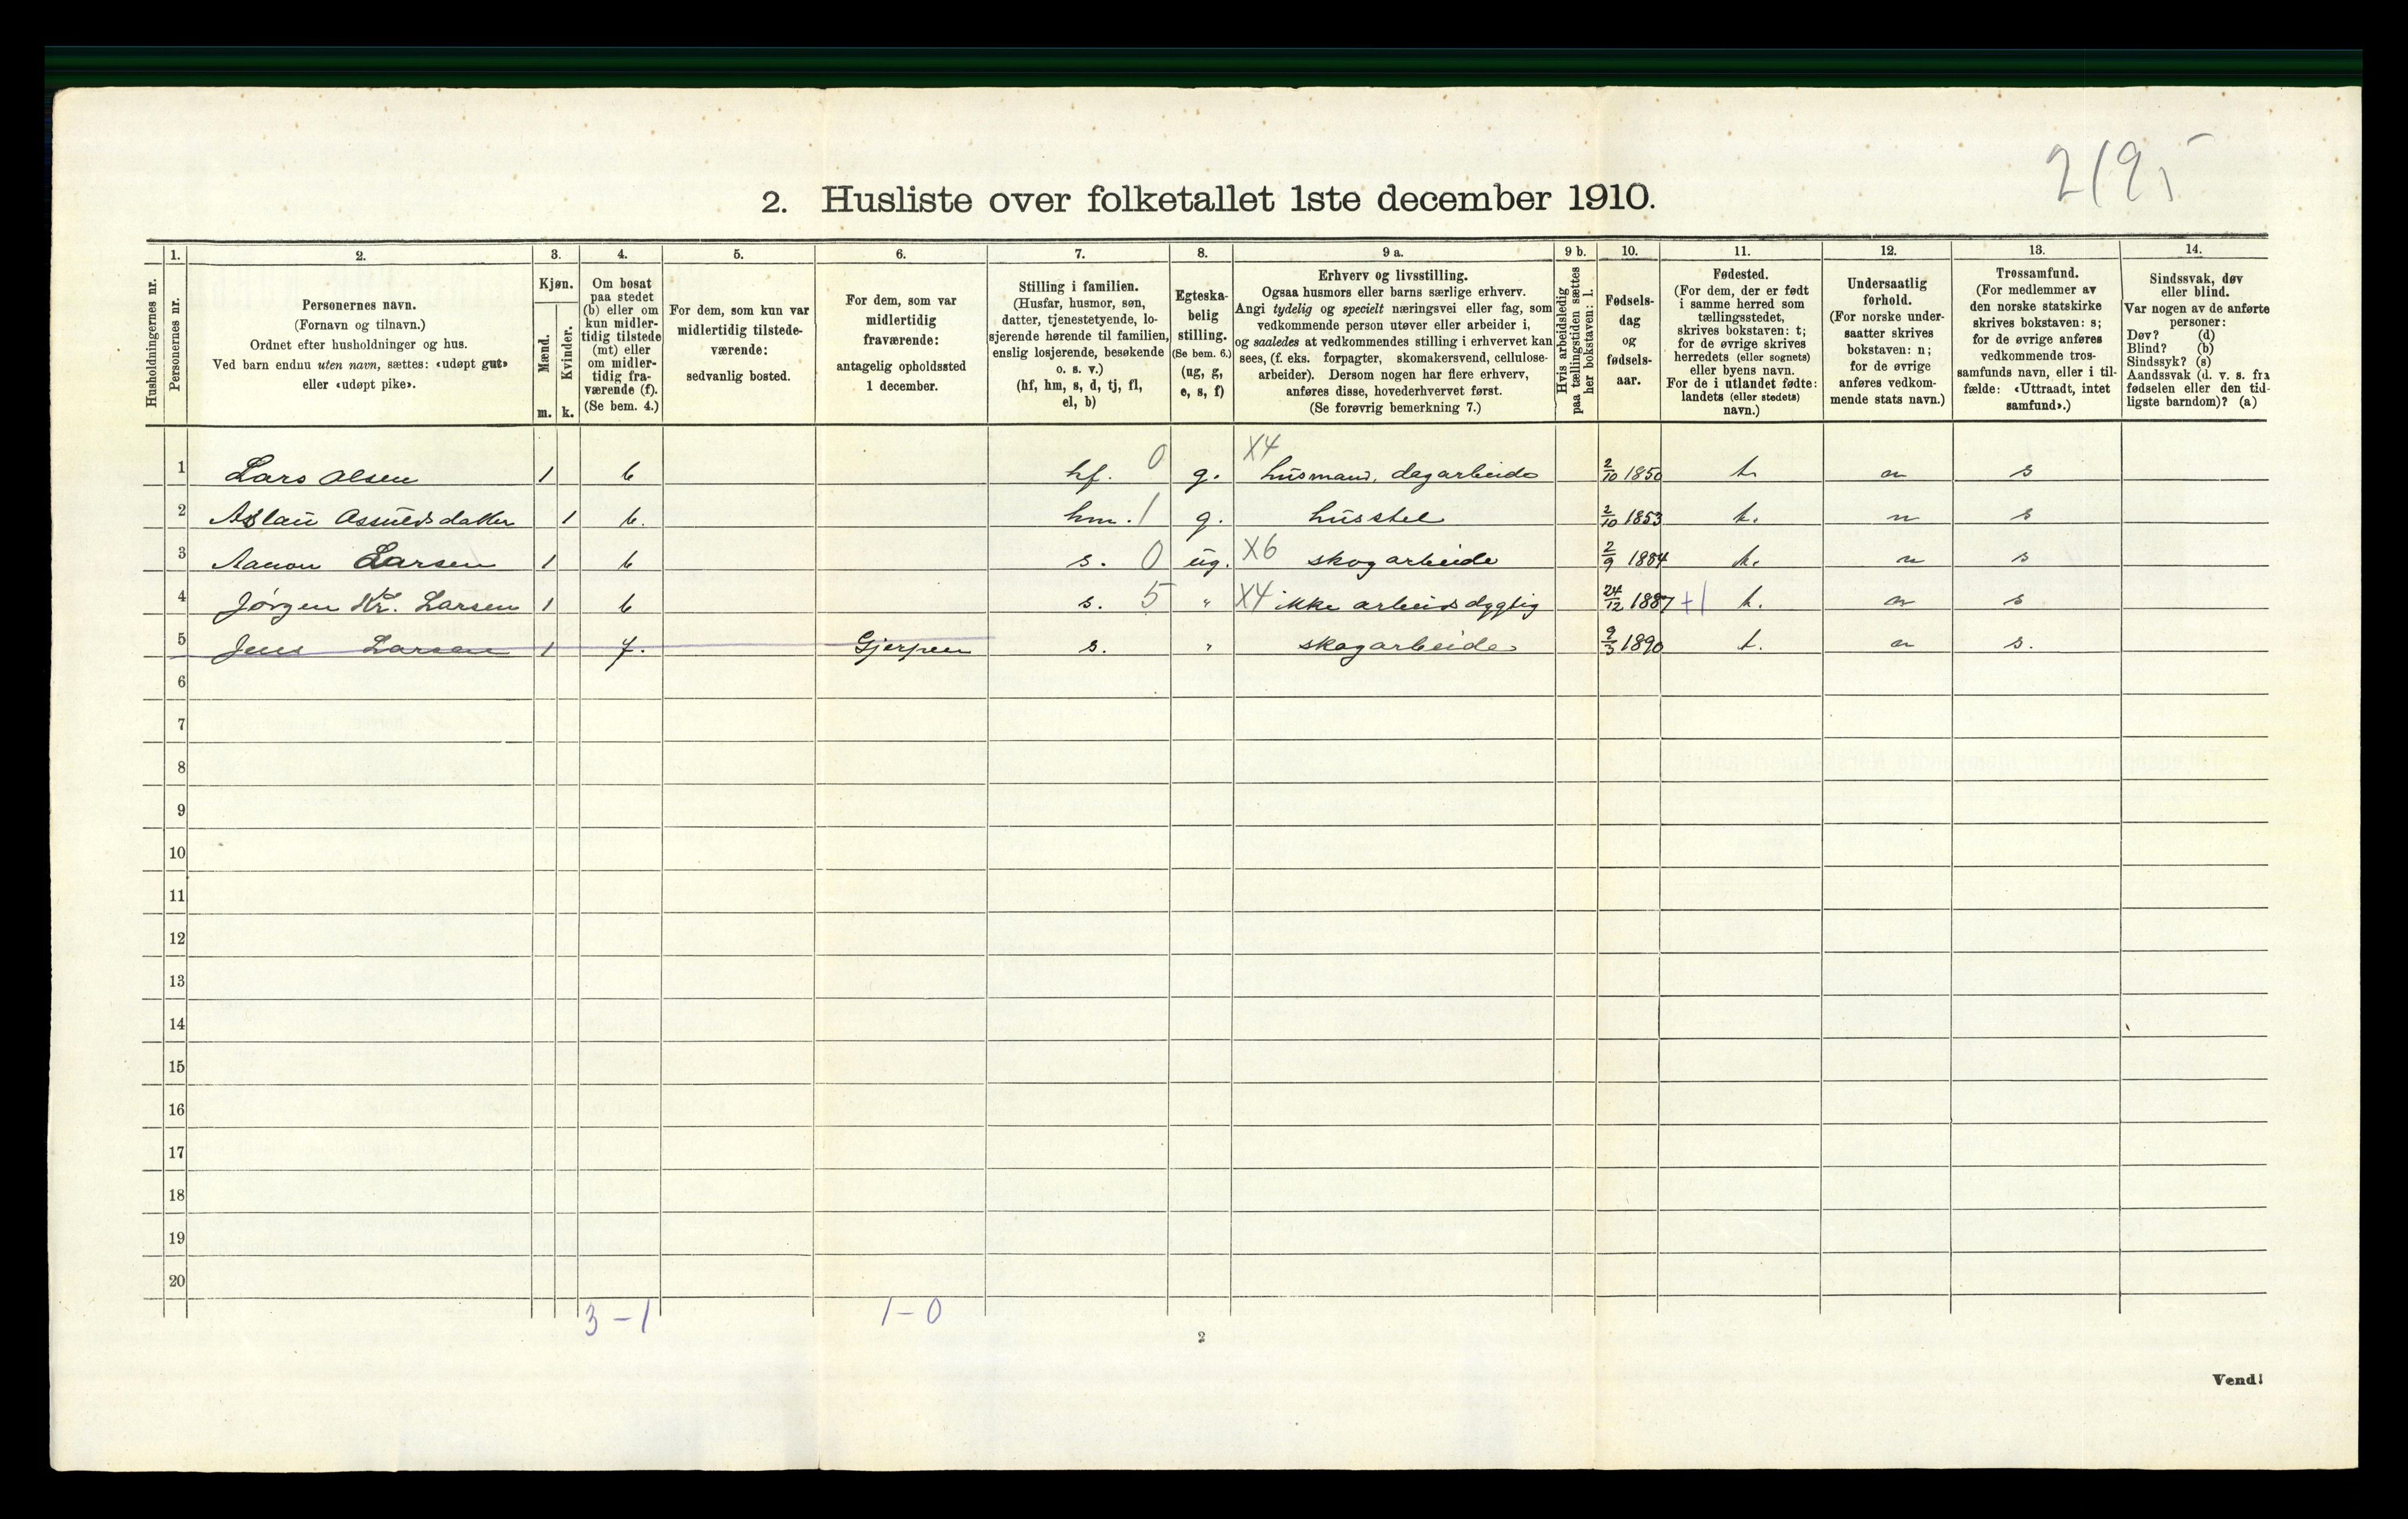 219,
2. Husliste over folketallet 1ste december 1910.
Husholdningernes nr.
1. Personernes nr.
2. Personernes navn.
(Fornavn og tilnavn.)
Ordnet efter husholdninger og hus.
Ved barn endnu uten navn, sættes: «udøpt gut»
eller «udøpt pike».
3. Kjøn.
Mænd. m.
Kvinder. k.
4. Om bosat
paa stedet
(b) eller om
kun midler-
tidig tilstede
(mt) eller
om midler-
tidig fra-
værende (f).
(Se bem. 4.)
5. For dem, som kun var
midlertidig tilstede-
værende:
sedvanlig bosted.
6. For dem, som var
midlertidig
fraværende:
antagelig opholdssted
1 december.
7. Stilling i familien.
(Husfar, husmor, søn,
datter, tjenestetyende, lo-
sjerende hørende til familien,
enslig losjerende, besøkende
o. s. v.)
(hf, hm, s, d, tj, fl,
el, b)
8. Egteska-
belig
stilling.
(Se bem. 6.)
(ug, g,
e, s, f)
9 a. Erhverv og livsstilling.
Ogsaa husmors eller barns særlige erhverv.
Angi tydelig og specielt næringsvei eller fag, som
vedkommende person utøver eller arbeider i,
og saaledes at vedkommendes stilling i erhvervet kan
sees, (f. eks. forpagter, skomakersvend, cellulose-
arbeider). Dersom nogen har flere erhverv,
anføres disse, hovederhvervet først.
(Se forøvrig bemerkning 7.)
9 b. Hvis arbeidsledig
paa tællingstiden sættes
her bokstaven: l.
10. Fødsels-
dag
og
fødsels-
aar.
11. Fødested.
(For dem, der er født
i samme herred som
tællingsstedet,
skrives bokstaven: t;
for de øvrige skrives
herredets (eller sognets)
eller byens navn.
For de i utlandet fødte:
landets (eller stedets)
navn.)
12. Undersaatlig
forhold.
(For norske under-
saatter skrives
bokstaven: n;
for de øvrige
anføres vedkom-
mende stats navn.)
13. Trossamfund.
(For medlemmer av
den norske statskirke
skrives bokstaven: s;
for de øvrige anføres
vedkommende tros-
samfunds navn, eller i til-
fælde: «Uttraadt, intet
samfund».)
14. Sindssvak, døv
eller blind.
Var nogen av de anførte
personer:
Døv? (d)
Blind? (b)
Sindssyk? (s)
Aandssvak (d. v. s. fra
fødselen eller den tid-
ligste barndom)? (a)
1 Lars Olsen 1 b hf. 0 g. X4 husmand, dagarbeide 2/10 1850 t n s
2 Aslau Assuldsdatter 1 b. hm. 1 g. husstel 2/10 1853 t. n s
3 Aanon Larsen 1 b s. 0 ug. X6 skogarbeide 2/9 1884 t. n s
4 Jørgen Kr. Larsen 1 b s. 5 " X4 ikke arbeidsdygtig 24/12 1887 +1 t. n s
5 Jens Larsen 1 f. Gjerpen s. " skogarbeide 9/3 1890 t. n s.
6
7
8
9
10
11
12
13
14
15
16
17
18
19
20
3-1 1-0
2
Vend!